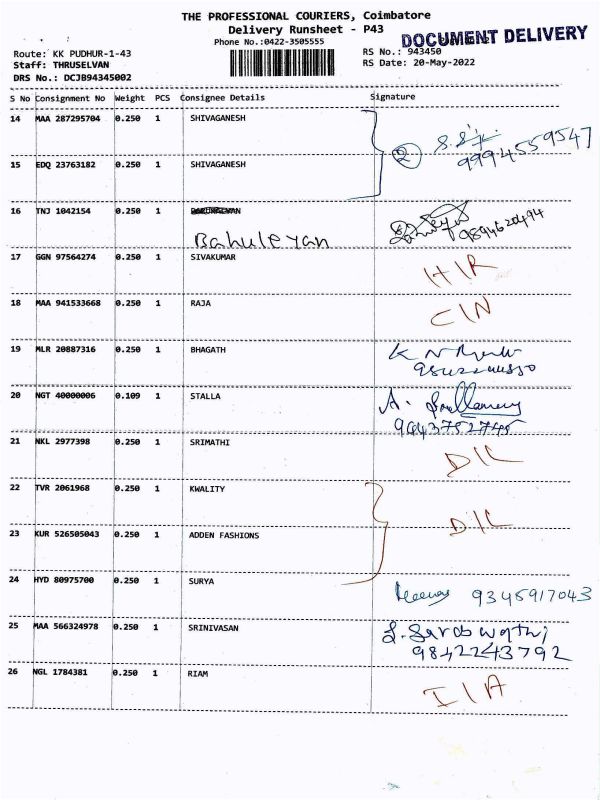 THE PROFESSIONAL COURIERS, Coimbatore
Delivery Runsheet - P43
Phone No.:0422-3505555
DOCUMENT DELIVERY
Route: KK PUDHUR-1-43
RS No.: 943450
Staff: THRUSELVAN
RS Date: 20-May-2022
DRS No.: DCJB94345002
S No Consignment No Weight PCS Consignee Details Signature
14 MAA 287295704 0.250 1 SHIVAGANESH
2 9994559547
15 EDQ 23763182 0.250 1 SHIVAGANESH
16 TNJ 1042154 0.250 1
Bahuleyan 9894620494
17 GGN 97564274 0.250 1 SIVAKUMAR H/R
18 MAA 941533668 0.250 1 RAJA C/N
19 MLR 20887316 0.250 1 BHAGATH
20 NGT 40000006 0.109 1 STALLA A.
21 NKL 2977398 0.250 1 SRIMATHI D/L
22 TVR 2061968 0.250 1 KWALITY
D/L
23 KUR 526505043 0.250 1 ADDEN FASHIONS
24 HYD 80975700 0.250 1 SURYA 9345917043
25 MAA 566324978 0.250 1 SRINIVASAN
9842243792
26 NGL 1784381 0.250 1 RIAM I/A